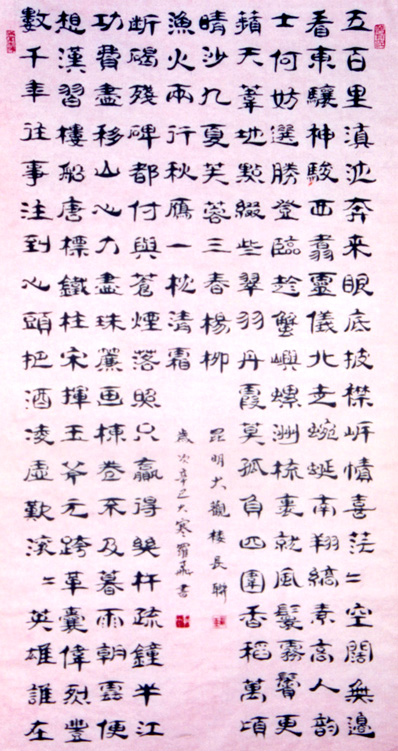 五百里滇池奔來眼底披襟岸幘喜茫〻空闊無邊
看東驤神駿西翥靈儀北走蜿蜒南翔縞素高人韻
士何妨選勝登臨趁蟹嶼螺洲梳裹就風鬟霧鬢更
蘋天葦地點綴些翠羽丹霞莫孤負四圍香稻萬頃
晴沙九夏芙蓉三春楊柳
昆明大觀樓長聯
數千年往事注到心頭把酒凌虛歎滾〻英雄誰在
想漢習樓船唐標鐵柱宋揮玉斧元跨革囊偉烈豐
功費盡移山心力盡珠簾画棟卷不及暮雨朝雲便
斷碣殘碑都付與蒼煙落照只贏得幾杵疏鐘半江
漁火兩行秋雁一枕清霜
歲次辛巳大寒書